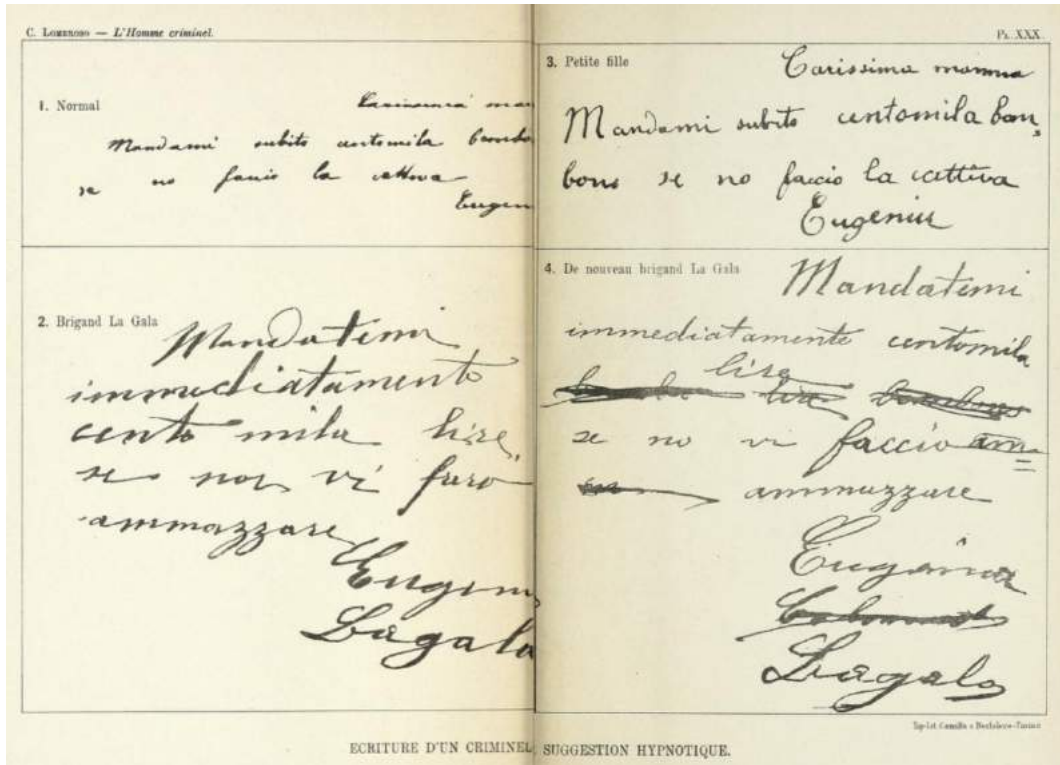 C. LOMBROSO — L'Homme criminel.
PL. XXX.
1. Normal
Carissima mam
Mandami subito centomila bombo
se no faccio la cattiva
Eugen
2. Brigand La Gala
Mandatemi
immediatamente
cento mila lire,
se non vi faro
ammazzare
Eugeni
Lagala
3. Petite fille
Carissima mamma
Mandami subito centomila bon,
bons se no faccio la cattiva
Eugeniu
4. De nouveau brigand La Gala
Mandatemi
immediatamente centomila
lire
lire
se no vi faccio am=
ammazzare
Eugenio
Lagala
Tip-Lit Camilla e Bertolero-Torino
ECRITURE D'UN CRIMINEL, SUGGESTION HYPNOTIQUE.